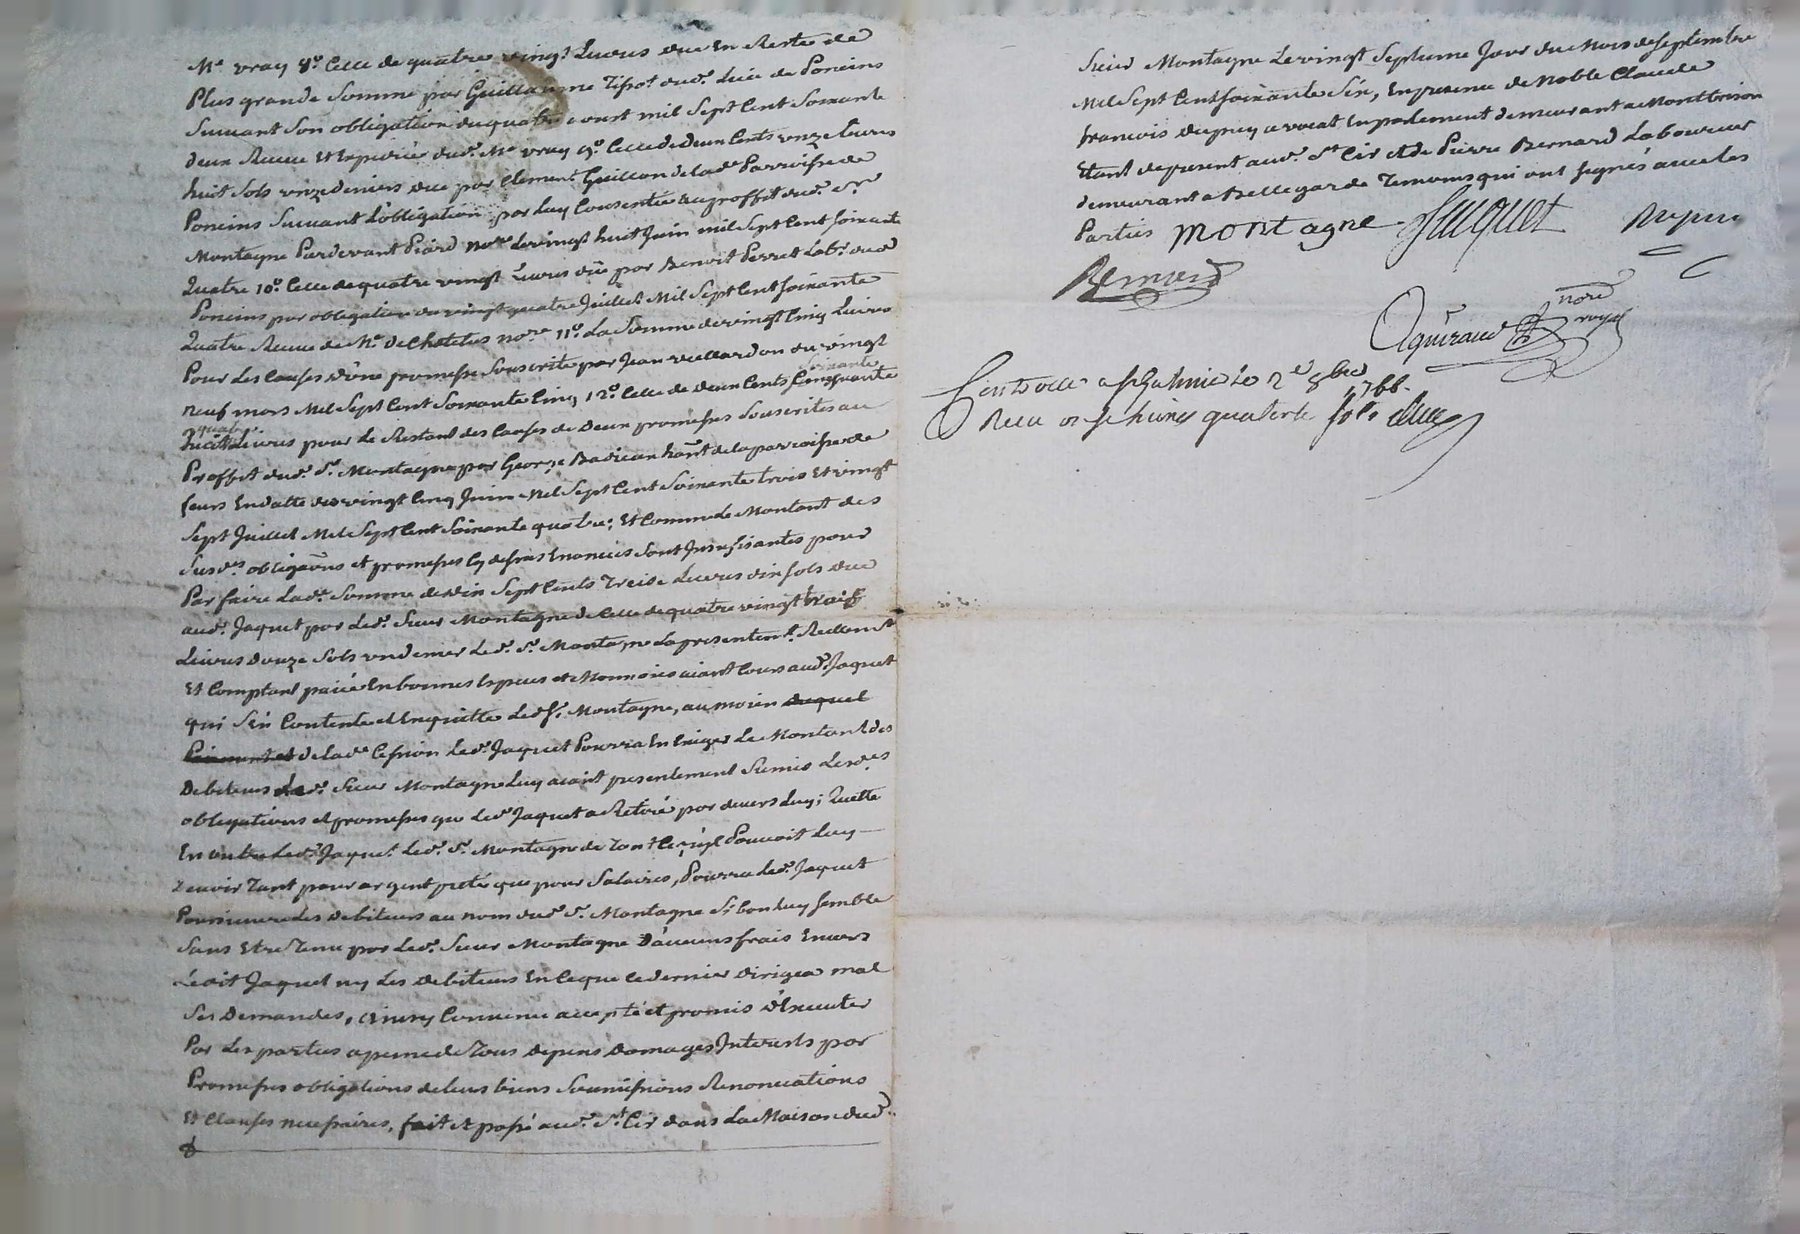 Me vray 8o. Celle de quatre vingt Livres due En Reste de
Plus grande Somme par Guillaume Tissot dud. Lieu de Poncins
Suivant Son obligation du quatre aoust mil Sept Cent Soixante
deux Receue Et Expediée dud. Me vray 9o. Celle de Deux Cents onze Livres
huit Sols onze deniers due par Clement Guillon de lad. Parroisse de
Poncins Suivant L'obligation par Luy Consentie au proffit dud. Sr
Montagne Pardevant Piard nore Le vingt huit Juin mil Sept Cent Soixante
Quatre 10o. Celle de quatre vingt Livres düe par Benoit Perret Labr. dud
Poncins par obligation du vingt quatre Juillet Mil Sept Cent Soixante
Quatre Receue de Me. De Chatelus nore 11o. La Somme de vingt Cinq Livres
Pour Les Causes D'une promesse Souscrite par Jean vieillardon du vingt
neuf mars Mil Sept Cent Soixante Cinq 12o. Celle de Deux Cents Cinquante
soixante
quatre
huit Livres pour Le Restant des Causes de Deux promesses Souscrites au
Proffit dud. Sr. Montagne par George Badieu hant de la parroisse de
feurs En datte des vingt Cinq Juin Mil Sept Cent Soixante trois Et vingt
Sept Juillet Mil Sept Cent Soixante quatre; Et Comme Le Montant des
Susdes obligaons et promesses Cy dessus Enoncées Sont Insufisantes pour
Par faire Lad. Somme de Dix Sept Cents Treize Livres dix Sols due
aud. Jaquet par Led. Sieur Montagne de Celle de quatre vingt trois
Livres Douze Sols un denier Led. Sr. Montagne La presentemt. Reellemt
Et Comptant paiée En bonnes Espèces et Monnoies aiant Cours aud. Jaquet
qui S'en Contente et En quitte Led. Sr. Montagne, au moien duquel
Paiement et de lad. Cession Led. Jaquet Pourra En Exiger Le Montant des
Debiteurs Led. Sieur Montagne Luy aiant presentement Remis Lesdes
obligations et promesses que Led. Jaquet a Retiré par devers Luy; Quitte
En outre Led. Jaquet Led. Sr. Montagne de Tout Ce qu'il Pouvoit Luy
Devoir Tant pour argent preté que pour Salaires, Pourra Led. Jaquet
Poursuivre Les Debiteurs au nom dud. Sr. Montagne Si bon Luy Semble
Sans Etre Tenu par Led. Sieur Montagne D'aucuns frais Envers
Ledit Jaquet ny Les Debiteurs En Ce que Ce dernier dirigea mal
Ses Demandes, ainsy Convenu accepté et promis D'Executer
Par Les parties a peine de Tous Depens Domages Interests par
Promesses obligations de leurs biens Soumissions Renonciations
Et Clauses necessaires, fait et passé aud. St. Cir dans La Maison dud.
Sieur Montagne Le vingt Septieme Jour du Mois de Septembre
Mil Sept Cent Soixante Six, En presence de Noble Claude
francois Dupuy avocat En parlement demeurant a Montbrison
Etant de present aud. St Cir et de Pierre Bernard Laboureur
demeurant a Bellegarde Temoins qui ont Signés avec Les
Parties Montagne Jaquet Dupuy
Bernard
Aguiraud nore royal
Controllé a St Galmier Le 2e 8bre 1766.
Recu onze livres quatorze sols